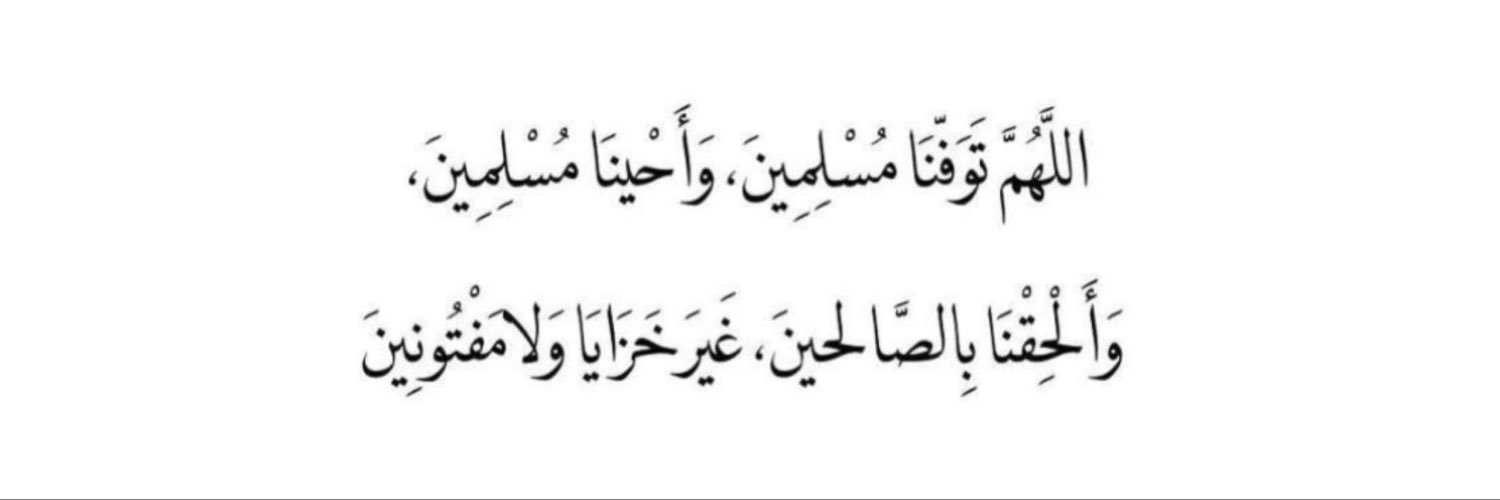 اللَّهُمَّ تَوَفّنَا مُسْلِمِينَ، وَأَحْينَا مُسْلِمِينَ،
وَأَلْحِقْنَا بِالصَّالحينَ، غَيرَ خَزَايَا وَلا مَفْتُونِينَ